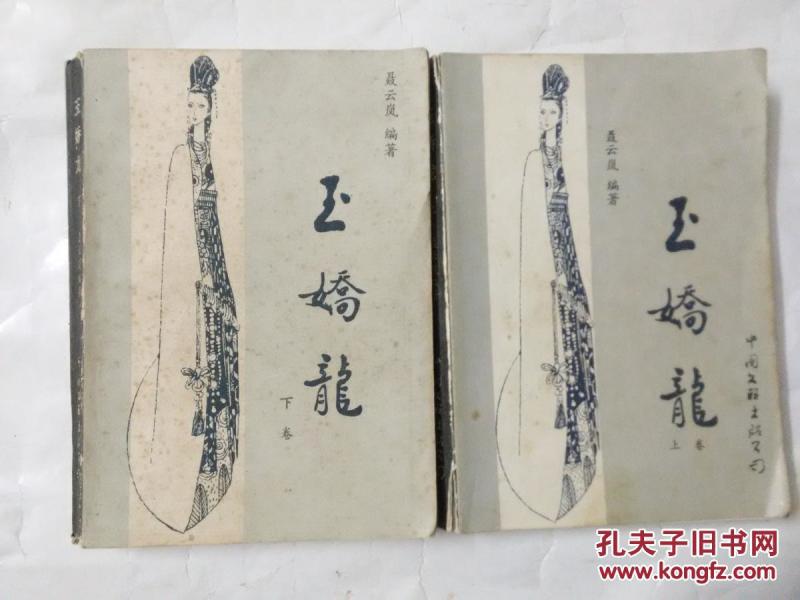 玉娇龙
聂云岚 编著
玉嬌龍
下卷
聂云岚 编著
玉嬌龍
上卷
中国文联出版公司
孔夫子旧书网
www.kongfz.com